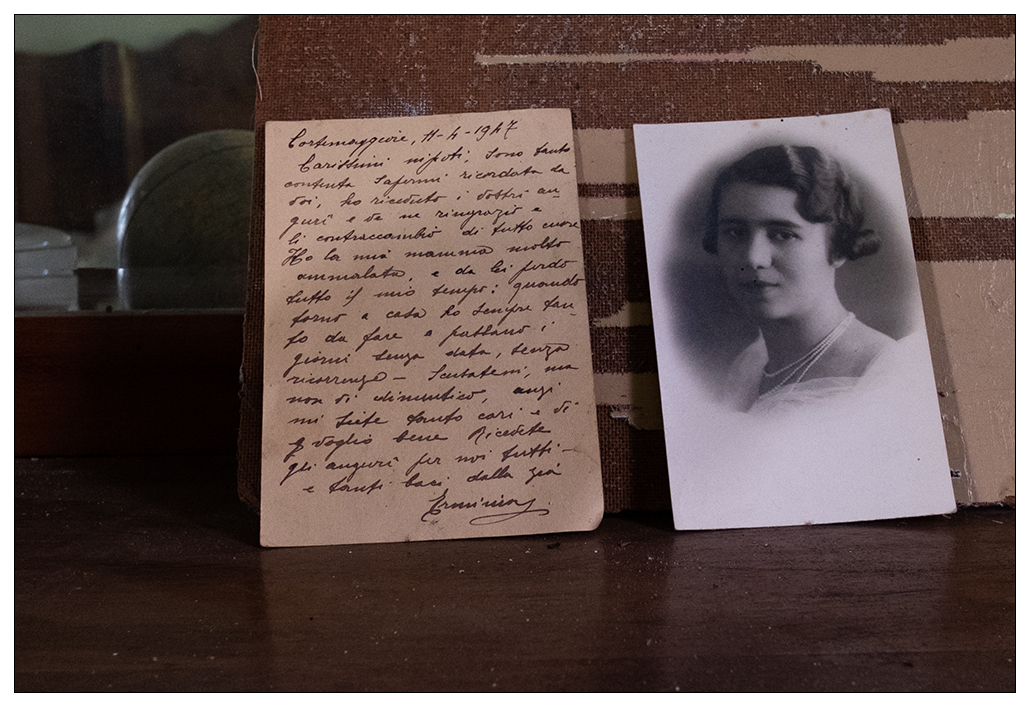 Cortemaggiore, 11-4-1947
Carissimi nipoti, sono tanto
contenta sapermi ricordata da
voi, ho ricevuto i vostri au-
guri e ve ne ringrazio e
li contraccambio di tutto cuore
Ho la mia mamma molto
ammalata, e da lei perdo
tutto il mio tempo: quando
torno a casa ho sempre tan-
to da fare e passano i
giorni senza data, senza
ricorrenze — Scusatemi, ma
non vi dimentico, anzi
mi siete tanto cari e vi
voglio bene Ricevete
gli auguri per voi tutti —
e tanti baci dalla zia
Erminia